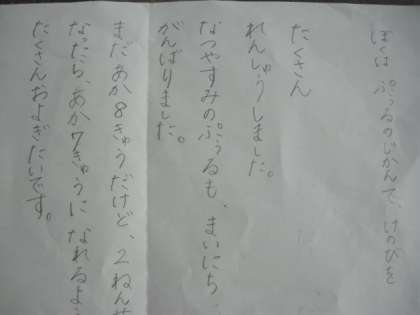 ぼくは ぷうるのじかんで、けのびを
たくさん
れんしゅうしました。
なつやすみのぷうるも、まいにち
がんばりました。
まだあか8きゅうだけど、2ねんせ
なったら、あか7きゅうに なれるよう
たくさんおよぎたいです。